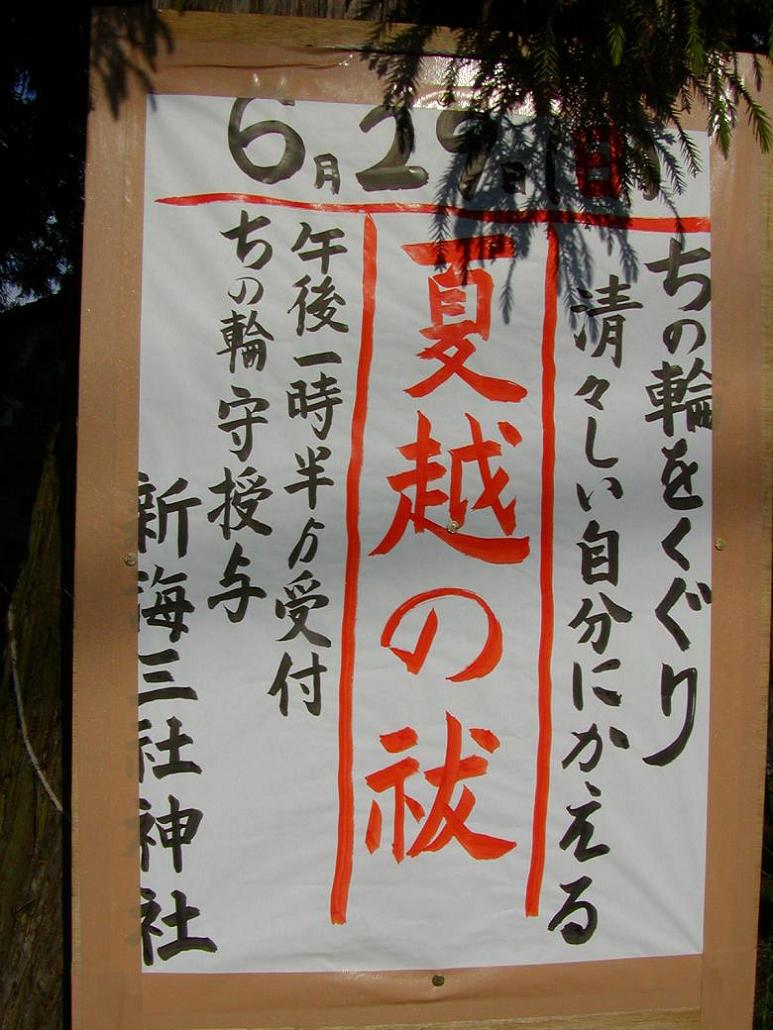 6月29日(日)
ちの輪をくぐり
清々しい自分にかえる
夏越の祓
午後一時半ゟ受付
ちの輪守授与
新海三社神社